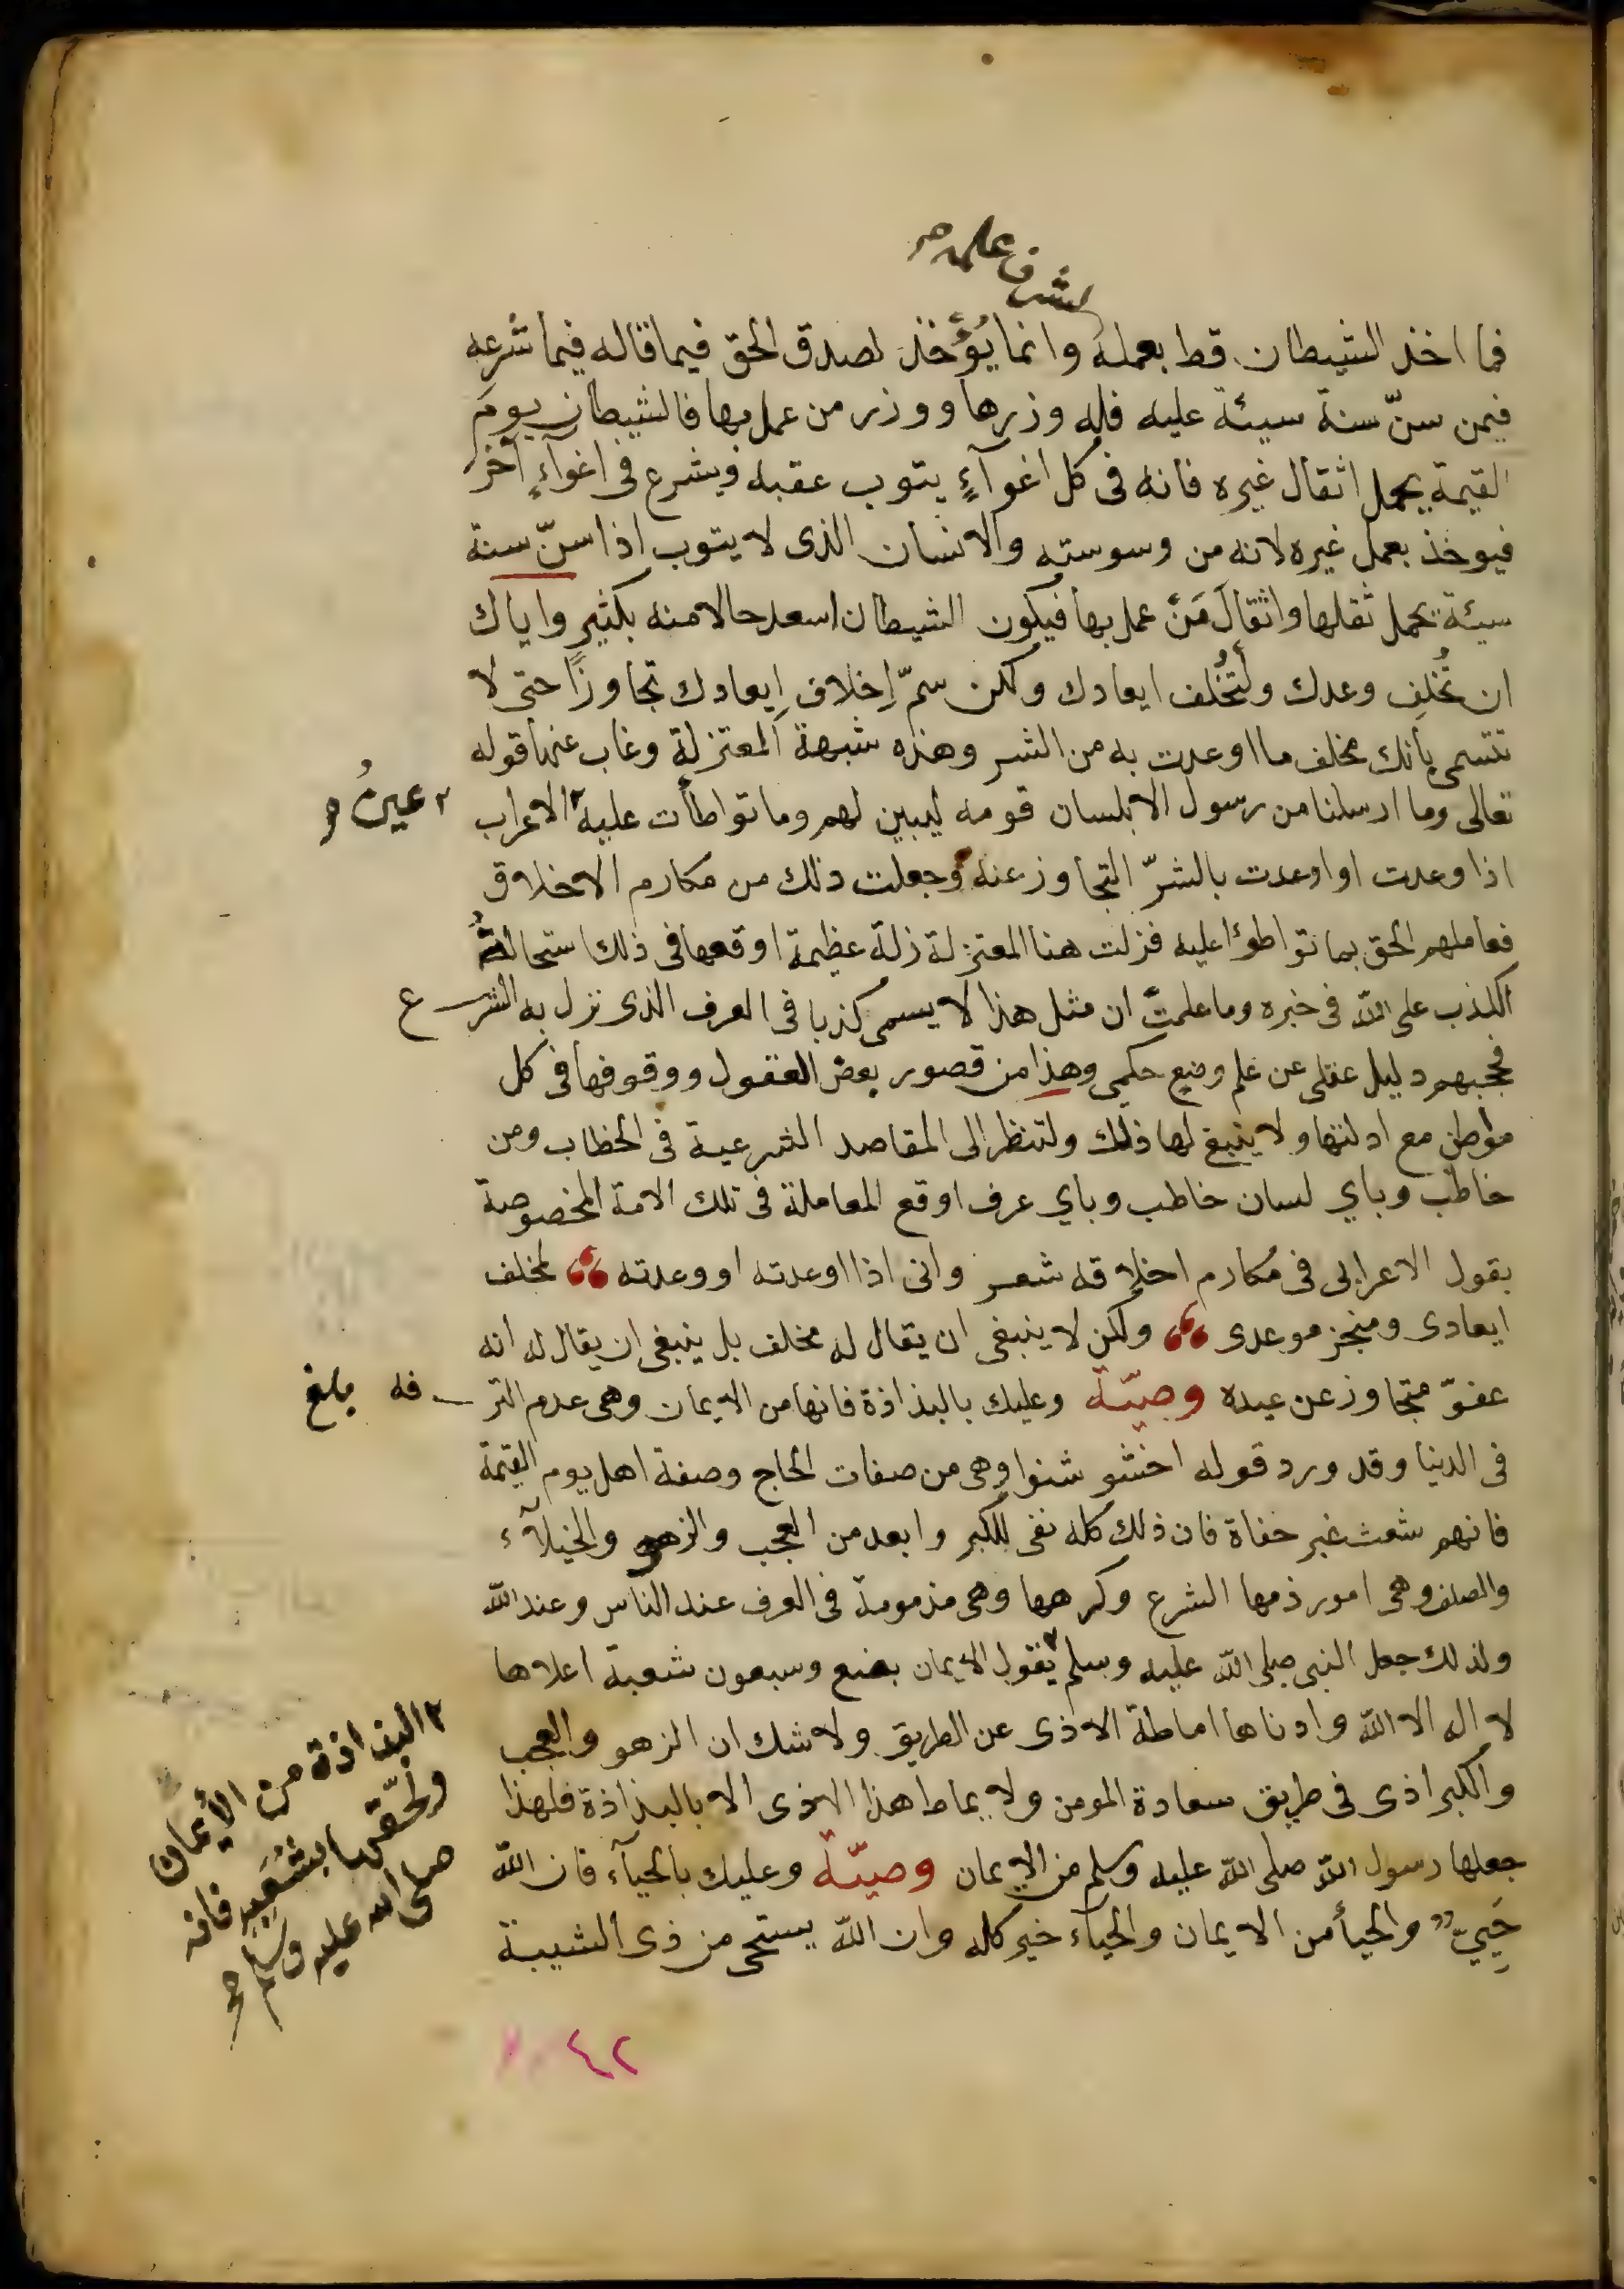 بشرف عمله صح
فما اخذ الشيطان قط بعمله وانما يُؤخذ لصدق الحق فيما قاله فيما شرعه
فيمن سنّ سنة سيئة عليه فله وزرها ووزر من عمل بها فالشيطان يوم
القيمة يحمل اثقال غيره فانه فى كل اغوآءٍ يتوب عقبه ويشرع فى اغوآءٍ آخر
فيوخذ بعمل غيره لانه من وسوسته والانسان الذى لا يتوب اذا سنّ سنة
سيئة يحمل ثقلها واثقالَ مَنْ عمل بها فيكون الشيطان اسعد حالا منه بكثير واياك
ان تُخلِف وعدك ولتُخْلف ايعادك ولكن سمّ اِخلاف اِيعادك تجاوزًا حتى لا
تتسمى بأنك مخلف ما اوعدت به من الشر وهذه شبهة المعتزلة وغاب عنها قوله
تعالى وما ارسلنا من رسول الا بلسان قومه ليبين لهم وما تواطأت عليه ٢ الاعراب
٢ عينُ صح
اذا وعدت او اوعدت بالشرّ التجاوز عنه وجعلت ذلك من مكارم الاخلاق
فعاملهم الحق بما تواطوٴا عليه فزلت هنا المعتزلة زلة عظيمة اوقعها فى ذلك استحالةُ
الكذب على الله فى خبره وما علمتْ ان مثل هذا لا يسمى كذبا فى العرف الذى نزل به الشرع
فحجبهم دليل عقلى عن علم وضع حكمى وهذا من قصور بعض العقول ووقوفها فى كل
موطن مع ادلتها ولا ينبغ لها ذلك ولتنظر الى المقاصد الشرعية فى الخطاب ومن
خاطب وباي لسان خاطب وباي عرف اوقع المعاملة فى تلك الامة المخصوصة
يقول الاعرابى فى مكارم اخلاقه شعر وانى اذا اوعدته او وعدته لمخلف
ايعادى ومنجز موعدى ولكن لا ينبغى ان يقال له مخلف بل ينبغى ان يقال له انه
عفوّ متجاوز عن عبده وصيّة وعليك بالبذاذة فانها من الايمان وهى عدم الترفه
بلغ
فى الدنيا وقد ورد قوله اخشوشنوا وهى من صفات الحاج وصفة اهل يوم القيمة
فانهم شعث غبر حفاة فان ذلك كله نفى للكبر وابعد من العجب والزهو والخيلآء
والصلف وهى امور ذمها الشرع وكرهها وهى مذمومة فى العرف عند الناس وعند الله
ولذلك جعل النبى صلى الله عليه وسلم ٢ يقول الايمان بضع وسبعون شعبة اعلاها
لا اله الا الله وادناها اماطة الاذى عن الطريق ولا شك ان الزهو والعجب
والكبر اذى فى طريق سعادة المومن ولا يماط هذا الاذى الا بالبذاذة فلهذا
جعلها رسول الله صلى الله عليه وسلم من الايمان وصيّة وعليك بالحيآء فان الله
حَيِيّ والحيأ من الايمان والحيآء خير كله وان الله يستحى من ذى الشيبة
٢ البذاذة من الأيمان
وأَلحَقَها بشُعَبِهِ فانه
صلى الله عليه وسلم صح
٤٢